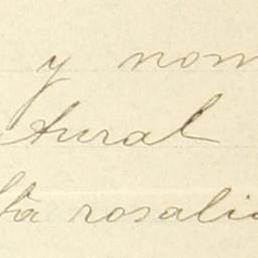 y nom
tural
ta rosali